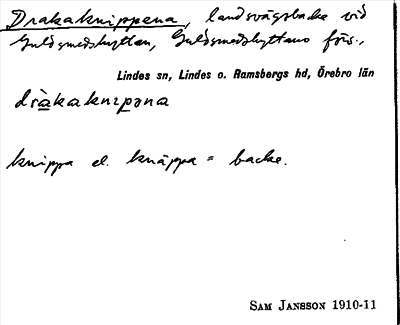 Drakaknippena, landsvägsbacke vid
Guldsmedshyttan, Guldsmedshyttans förs.,
Lindes sn, Lindes o. Ramsbergs hd, Örebro län
dràkaknɪpəna
knippa el. knäppa = backe.
SAM JANSSON 1910-11